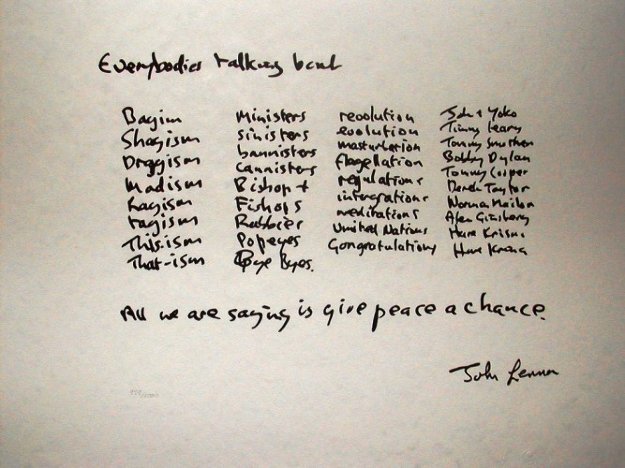 Everybodies talking bout
Bagism
Shagism
Dragism
Madism
Ragism
Tagism
This-ism
That-ism
Ministers
Sinisters
bannisters
Cannisters
Bishop +
Fishops
Rabbies
Popeyes
Bye Byes.
revolution
evolution
masturbation
flagellation
regulations
intergrations
meditations
United Nations
Congratulations
John + Yoko
Timmy Leary
Tommy Smothers
Bobby Dylan
Tommy Cooper
Derek Taylor
Norman Mailer
Alan Ginsberg
Hare Krisna
Hare Krisna
All we are saying is give peace a chance.
John Lennon